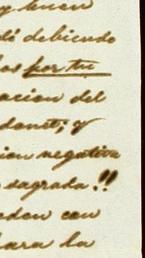 y buen
debiendo
los por tu
acion del
donet; y
ion negativa
sagrada!!
eden con
para la